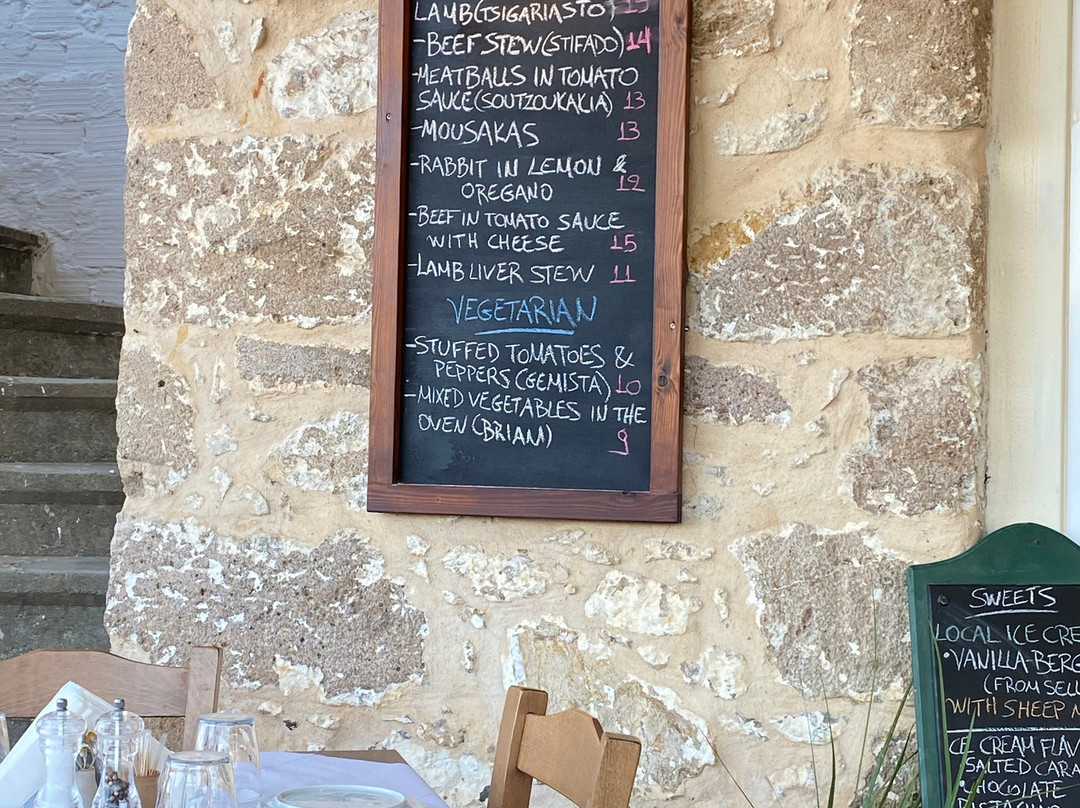 LAMB(TSIGARIASTO) 15
-BEEF STEW(STIFADO) 14
-MEATBALLS IN TOMATO
SAUCE(SOUTZOUKAKIA) 13
-MOUSAKAS 13
-RABBIT IN LEMON &
OREGANO 12
-BEEF IN TOMATO SAUCE
WITH CHEESE 15
-LAMB LIVER STEW 11
VEGETARIAN
-STUFFED TOMATOES &
PEPPERS(GEMISTA) 10
-MIXED VEGETABLES IN THE
OVEN(BRIAM) 9
SWEETS
LOCAL ICE CRE
•VANILLA-BERG
(FROM SELL
WITH SHEEP M
ICE CREAM FLAV
SALTED CARA
•CHOCOLATE